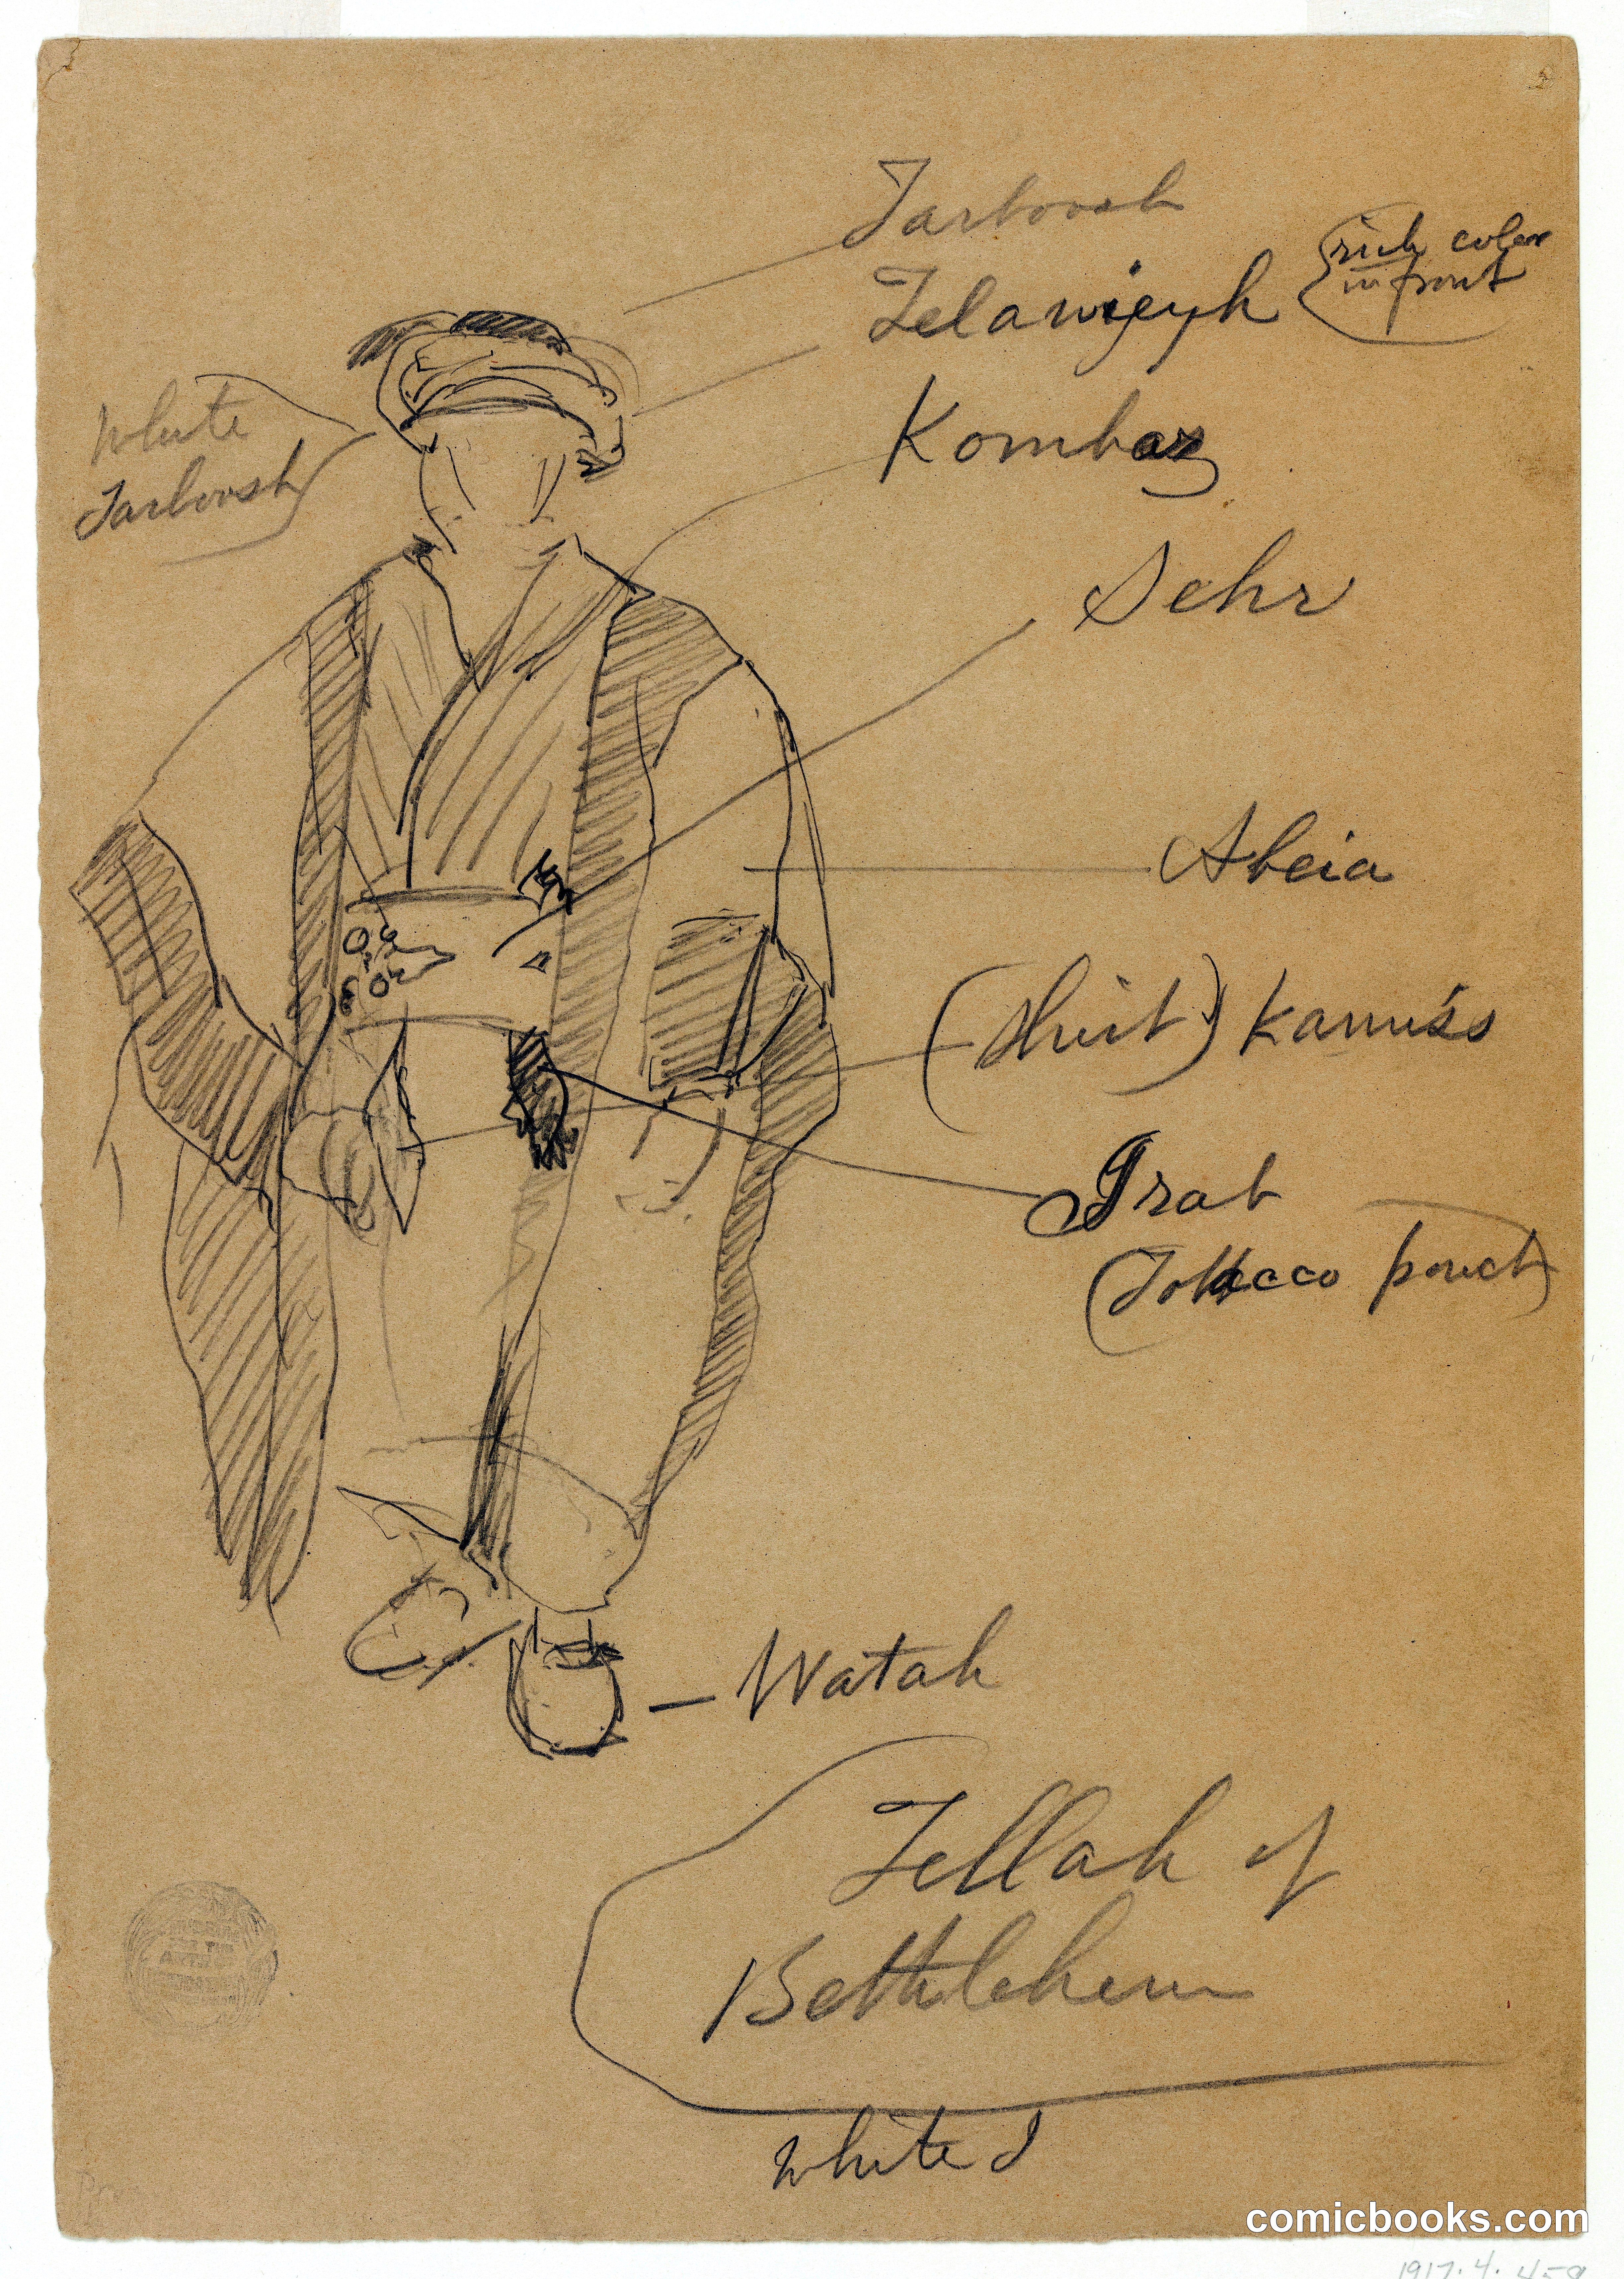 Tarboosh
Zelawijeyh
(rich color
in front
Kombaz
White
Tarboosh
Sehr
Abeia
(shirt) Kamuss
Grab
(Tobacco pouch)
Watah
Fellah of
Bethlehem
White
comicbooks.com
1917.4.459